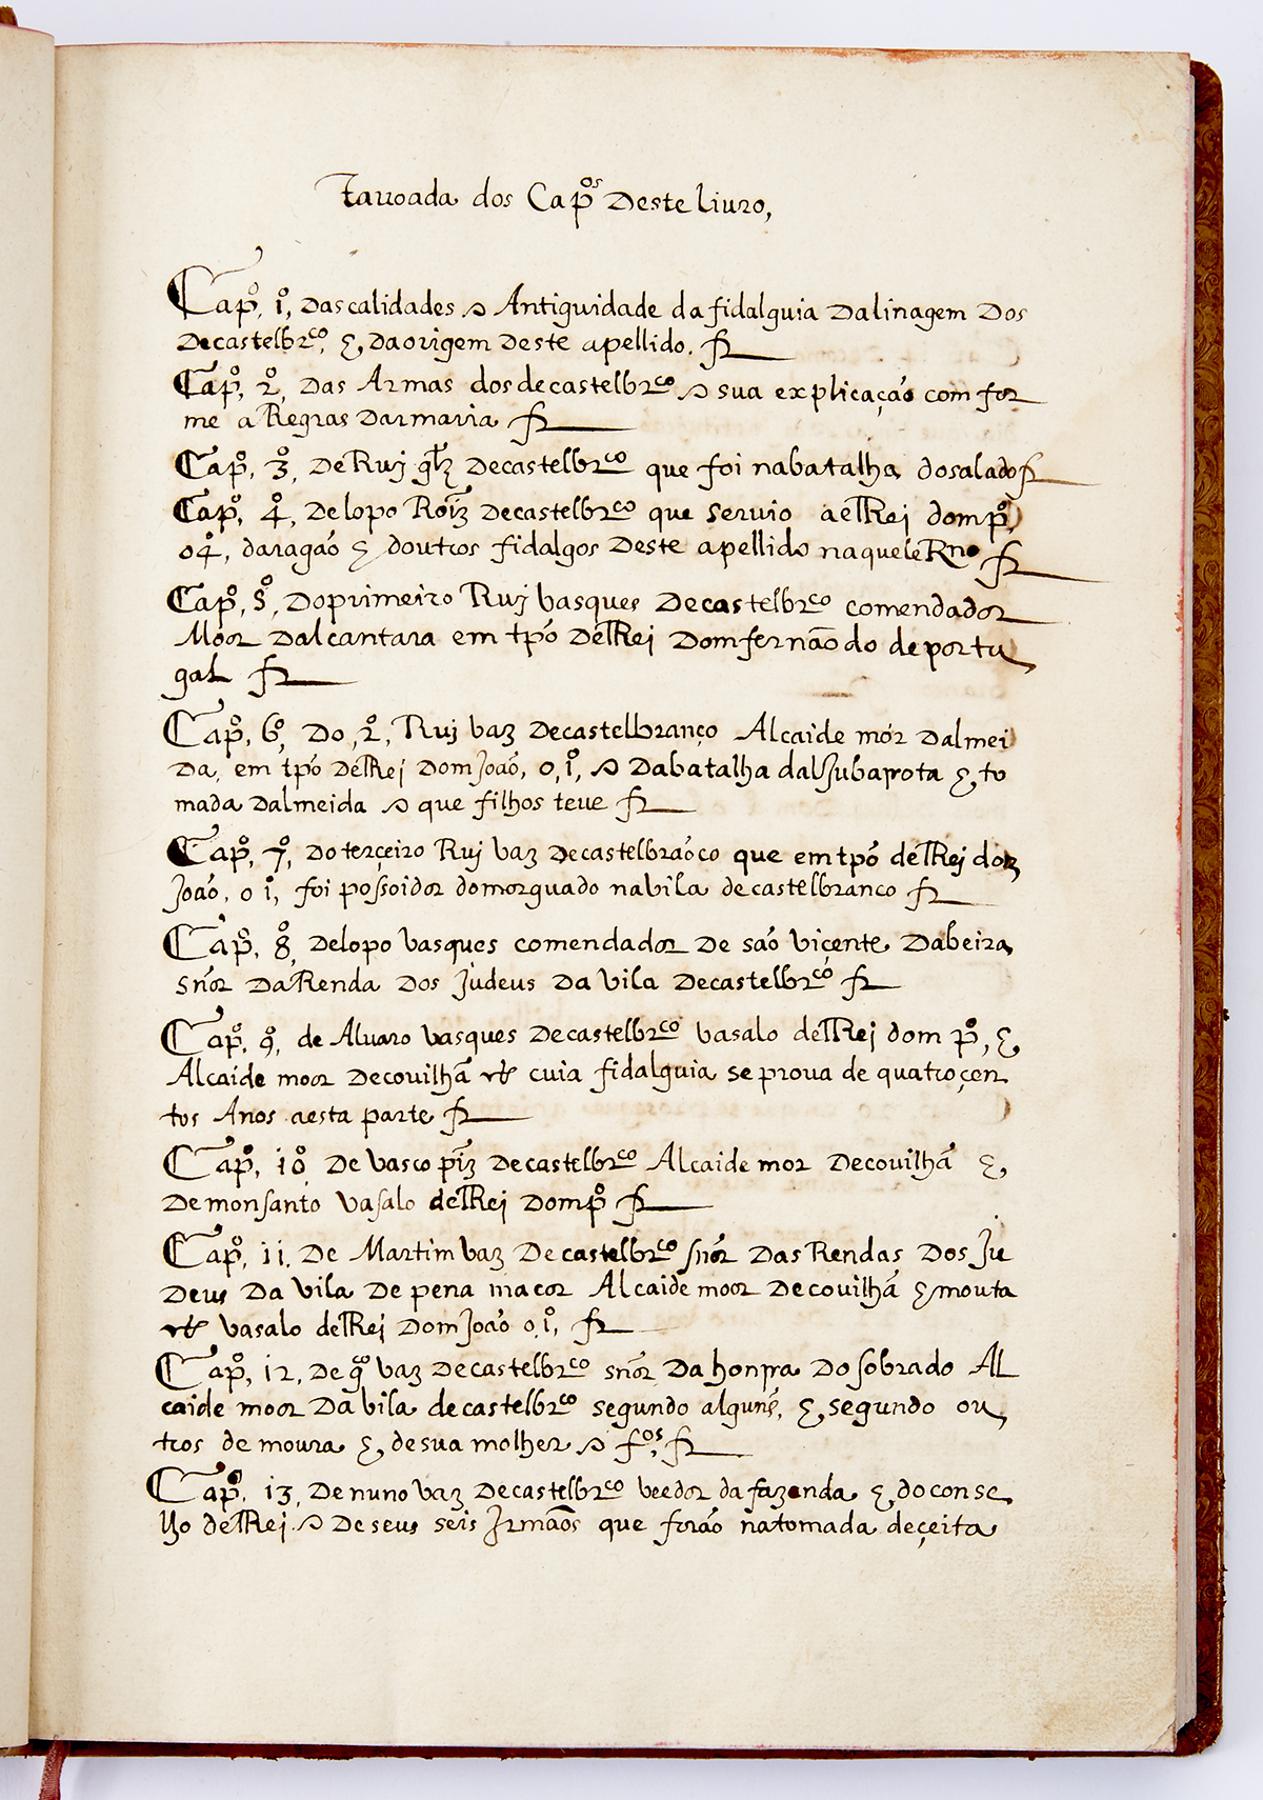 Tauoada dos Capos Deste liuro,
Capo, 1o, Das calidades & Antiguidade da fidalguia Da linagem Dos
Decastelbrco, &, da origem Deste apellido.
Capo, 2o, Das Armas dos decastelbrco & sua explicação com for
me a Regras Darmaria
Capo, 3o, De Ruj glz Decastelbrco que foi na batalha do salado
Capo, 4o, De lopo Roiz Decastelbrco que seruio a elRei dom po,
o 4o, daragaó & doutros fidalgos Deste apellido naquele Rno
Capo, 5o, Do primeiro Ruj vasques Decastelbrco comendador
Moor Dalcantara em tpó DelRei Dom fernãodo de portu
gal
Capo, 6o, Do, 2o, Ruj vaz Decastelbranço Alcaide mór Dalmei
Da, em tpó DelRei Dom Joaó, o, 1o, & Da batalha dalJubarrota & to
mada Dalmeida & que filhos teue
Capo, 7o, Do terçeiro Ruj vaz Decastelbraóco que em tpó delRei dom
Joaó, o 1o, foi possoidor do morguado na vila de castelbranco
Capo, 8o, De lopo vasques comendador De saó viçente Dabeira
snór Da Renda Dos judeus Da vila Decastelbrco
Capo, 9o, de Aluaro vasques Decastelbrco vasalo delRei dom po, &,
Alcaide moor Decouilhã etc cuia fidalguia se proua de quatroçen
tos Anos a esta parte
Capo, 10o De vasco piz Decastelbrco Alcaide mor Decouilhã &,
De monsanto vasalo delRei Dom po
Capo, 11, De Martim vaz Decastelbrco snór Das Rendas Dos Ju
Deus Da vila De pena macor Alcaide moor Decouilhã & mouta
etc vasalo delRei Dom Joaó o, 1o,
Capo, 12, De go vaz Decastelbrco snór Da honrra Do sobrado Al
caide moor Da vila decastelbrco segundo alguns, &, segundo ou
tros de moura &, de sua molher & fos,
Capo, 13, De nuno vaz Decastelbrco veedor da fazenda &, do conse
lho delRei & De seus seis Irmãos que foraó na tomada deçeita